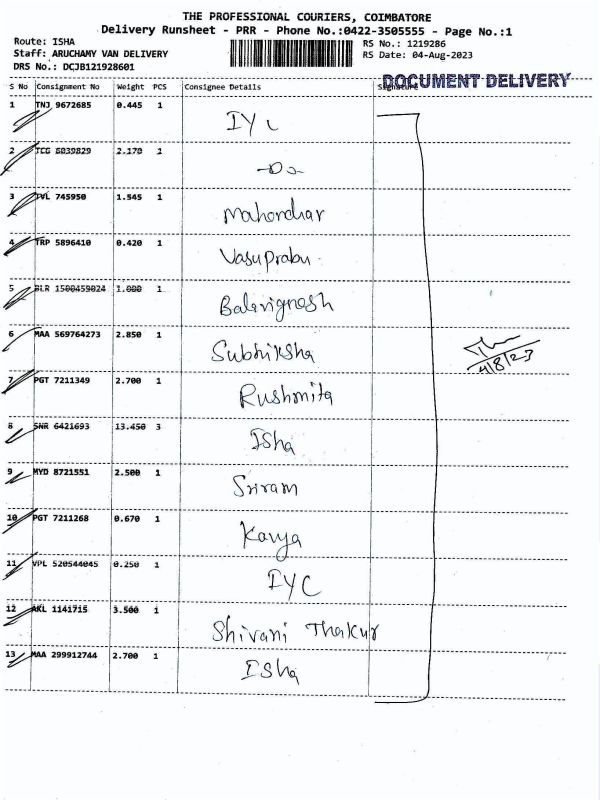 THE PROFESSIONAL COURIERS, COIMBATORE
Delivery Runsheet - PRR - Phone No.:0422-3505555 - Page No.:1
Route: ISHA
RS No.: 1219286
Staff: ARUCHAMY VAN DELIVERY
RS Date: 04-Aug-2023
DRS No.: DCJB121928601
DOCUMENT DELIVERY
S No Consignment No Weight PCS Consignee Details Signature
1 TNJ 9672685 0.445 1 IYC
2 TCG 5039829 2.170 1 -Do-
3 TVL 745950 1.545 1 Mahendhar
4 TRP 5896410 0.420 1 Vasuprabu
5 BLR 1500459024 1.000 1 Balavignesh
6 MAA 569764273 2.850 1 Subhiksha
4/8/23
7 PGT 7211349 2.700 1 Rushmita
8 SNR 6421693 13.450 3 Isha
9 MYD 8721551 2.500 1 Sriram
10 PGT 7211268 0.670 1 Kavya
11 VPL 520544045 0.250 1 IYC
12 AKL 1141715 3.500 1 Shivani Thakur
13 MAA 299912744 2.700 1 Isha